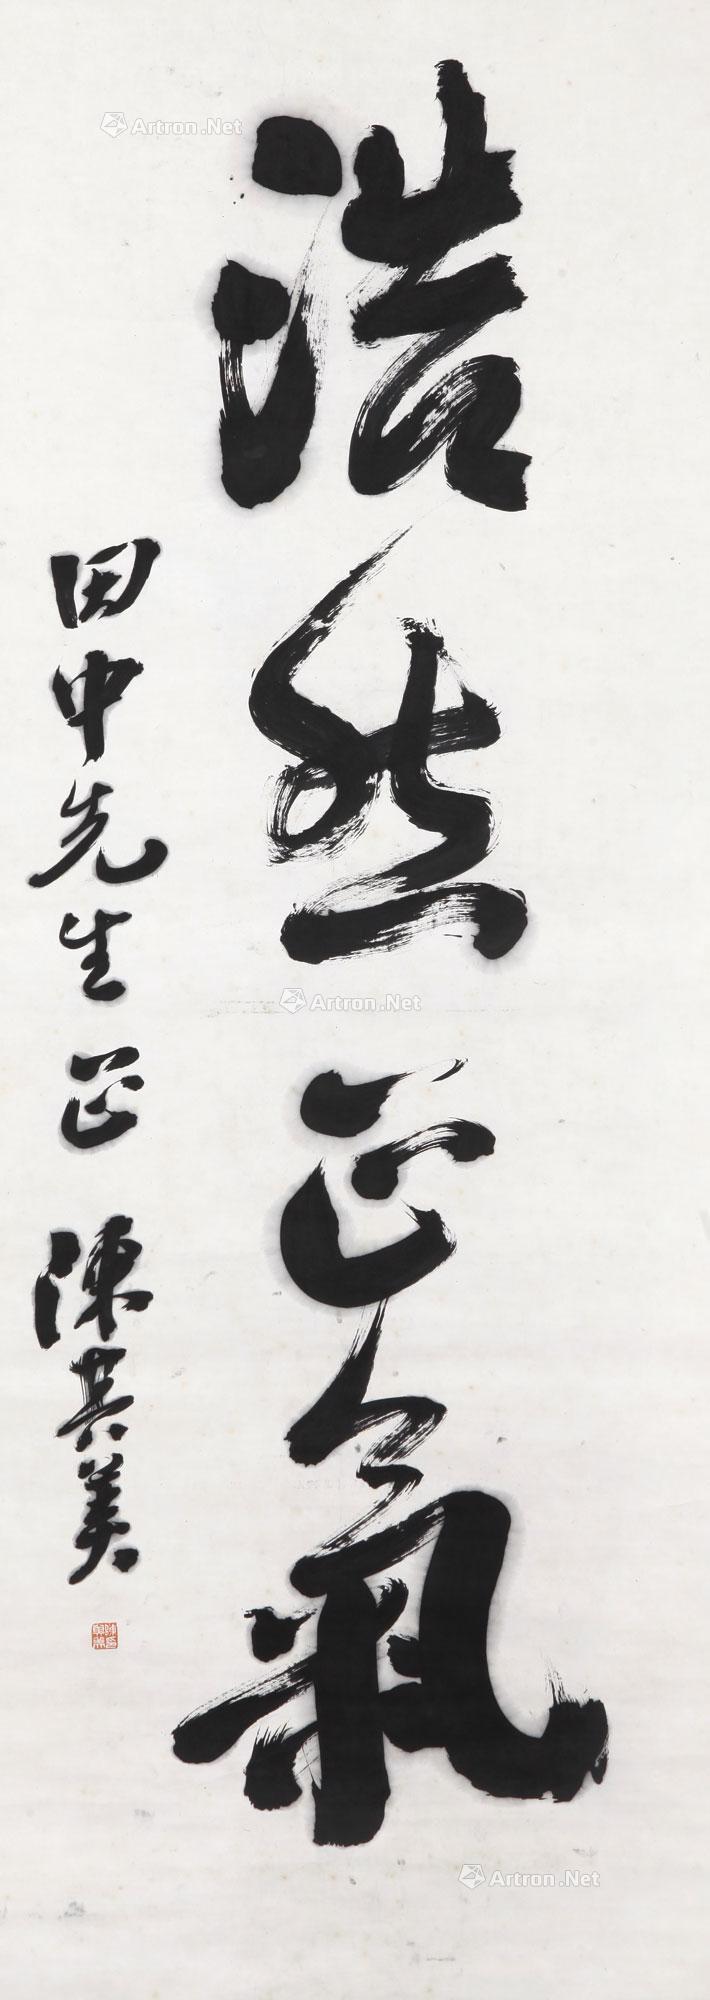 浩然正氣
田中先生 正 陳其美
Artron.Net
Artron.Net
Artron.Net